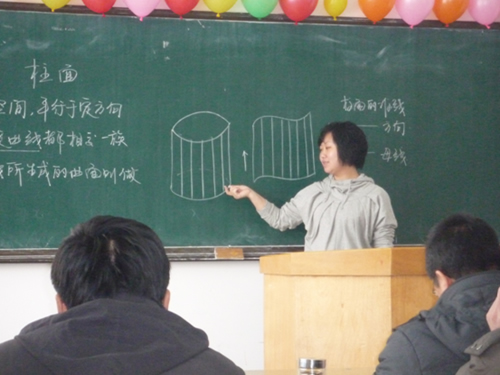 柱面
空间,平行于定方向
曲线都相交一族
所生成的曲面叫做
柱面的准线
方向
母线